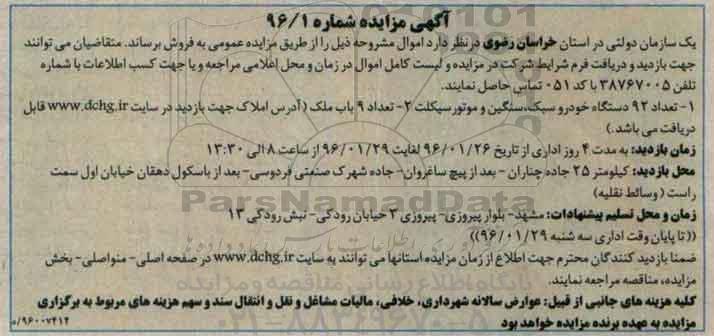 آگهی مزایده شماره ۹۶/۱
یک سازمان دولتی در استان خراسان رضوی در نظر دارد اموال مشروحه ذیل را از طریق مزایده عمومی به فروش برساند. متقاضیان می توانند
جهت بازدید و دریافت فرم شرایط شرکت در مزایده و لیست کامل اموال در زمان و محل اعلامی مراجعه و یا جهت کسب اطلاعات با شماره
تلفن ۳۸۷۶۷۰۰۵ با کد ۰۵۱ تماس حاصل نمایند.
۱- تعداد ۹۲ دستگاه خودرو سبک، سنگین و موتور سیکلت ۲- تعداد ۹ باب ملک (آدرس املاک جهت بازدید در سایت www.dchg.ir قابل
دریافت می باشد.)
زمان بازدید: به مدت ۴ روز اداری از تاریخ ۹۶/۰۱/۲۶ لغایت ۹۶/۰۱/۲۹ از ساعت ۸ الی ۱۳:۳۰
محل بازدید: کیلومتر ۲۵ جاده چناران - بعد از پیچ ساغروان- جاده شهرک صنعتی فردوسی- بعد از باسکول دهقان خیابان اول سمت
راست (وسائط نقلیه)
زمان و محل تسلیم پیشنهادات: مشهد- بلوار پیروزی- پیروزی ۳ خیابان رودکی- نبش رودکی ۱۳
((تا پایان وقت اداری سه شنبه ۹۶/۰۱/۲۹))
ضمنا بازدید کنندگان محترم جهت اطلاع از زمان مزایده استانها می توانند به سایت www.dchg.ir در صفحه اصلی- منواصلی- بخش
مزایده، مناقصه مراجعه نمایند.
کلیه هزینه های جانبی از قبیل: عوارض سالانه شهرداری، خلافی، مالیات مشاغل و نقل و انتقال سند و سهم هزینه های مربوط به برگزاری
مزایده به عهده برنده مزایده خواهد بود
۹۶۰۰۷۴۱۲/م
ParsNamadData
پایگاه اطلاع رسانی مناقصه و مزایده